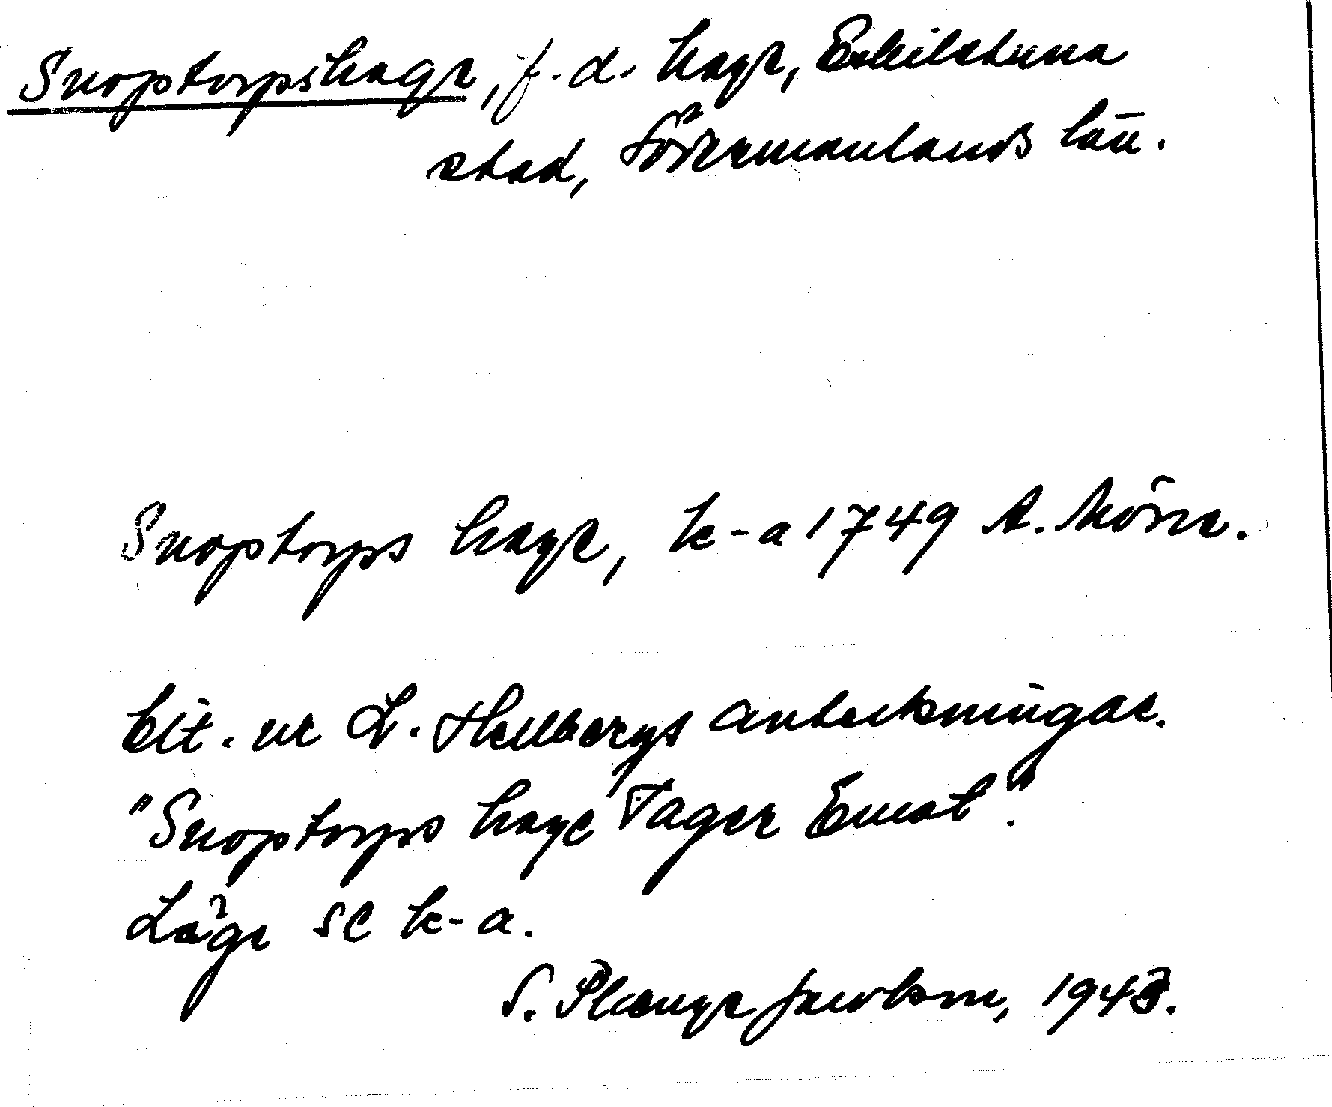 Snoptorpshage, f.d. hage, Eskilstuna
stad, Södermanlands län.
Snoptorps hage, k-a 1749 A. Mörn.
Cit. ur L. Hellbergs anteckningar.
"Snoptorps hage Tager Emot".
Läge se k-a.
S. Plenge Jacobson, 1943.